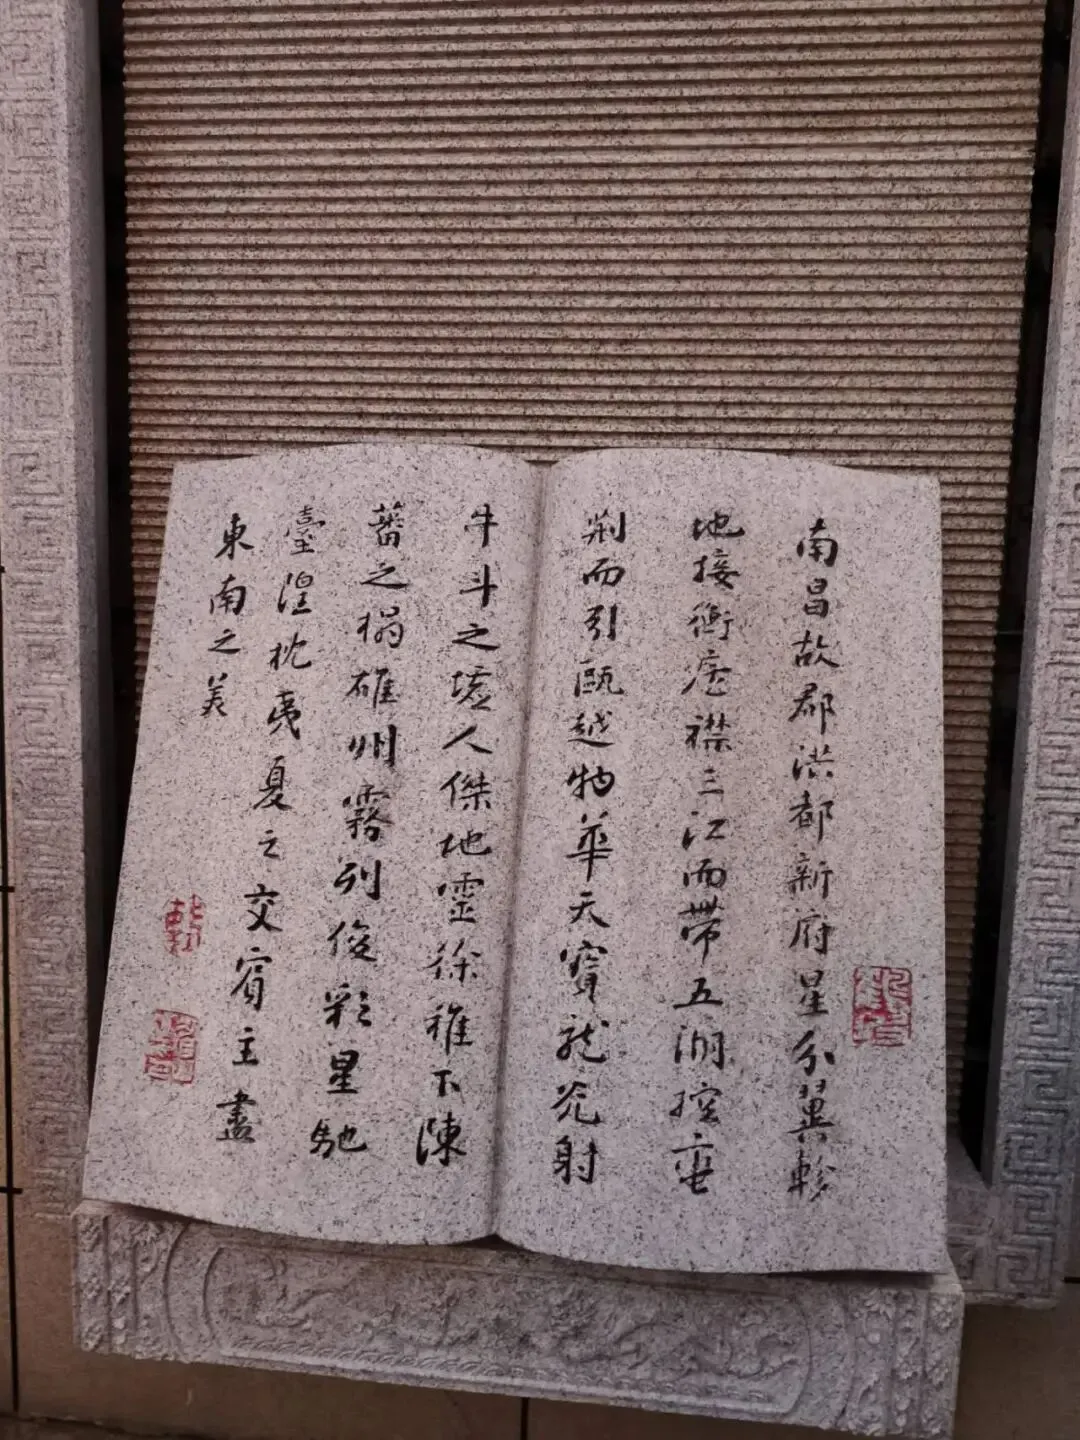 南昌故郡洪都新府星分翼軫
地接衡廬襟三江而帶五湖控蠻
荆而引甌越物華天寶龍光射
牛斗之墟人傑地靈徐稚下陳
蕃之榻雄州霧列俊彩星馳
臺隍枕夷夏之交賓主盡
東南之美